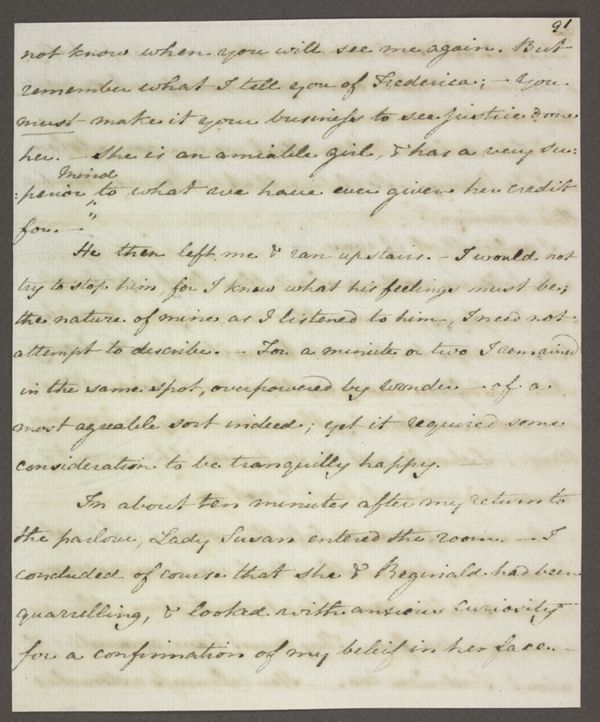 91
not know when you will see me again. But
remember what I tell you of Frederica; – You
must make it your business to see justice done
her. – She is an amiable girl, & has a very su:
Mind
:perior to what we have ever given her credit
for. – "
He then left me & ran upstairs. – I would not
try to stop him, for I knew what his feelings must be;
the nature of mine as I listened to him, I need not
attempt to describe. – For a minute or two I remained
in the same spot, overpowered by wonder – of a
most agreable sort indeed; yet it required some
consideration to be tranquilly happy. –
In about ten minutes after my return to
the parlour, Lady Susan entered the room. – I
concluded of course that she & Reginald had been
quarrelling, & looked with anxious curiosity
for a confirmation of my beleif in her face. –